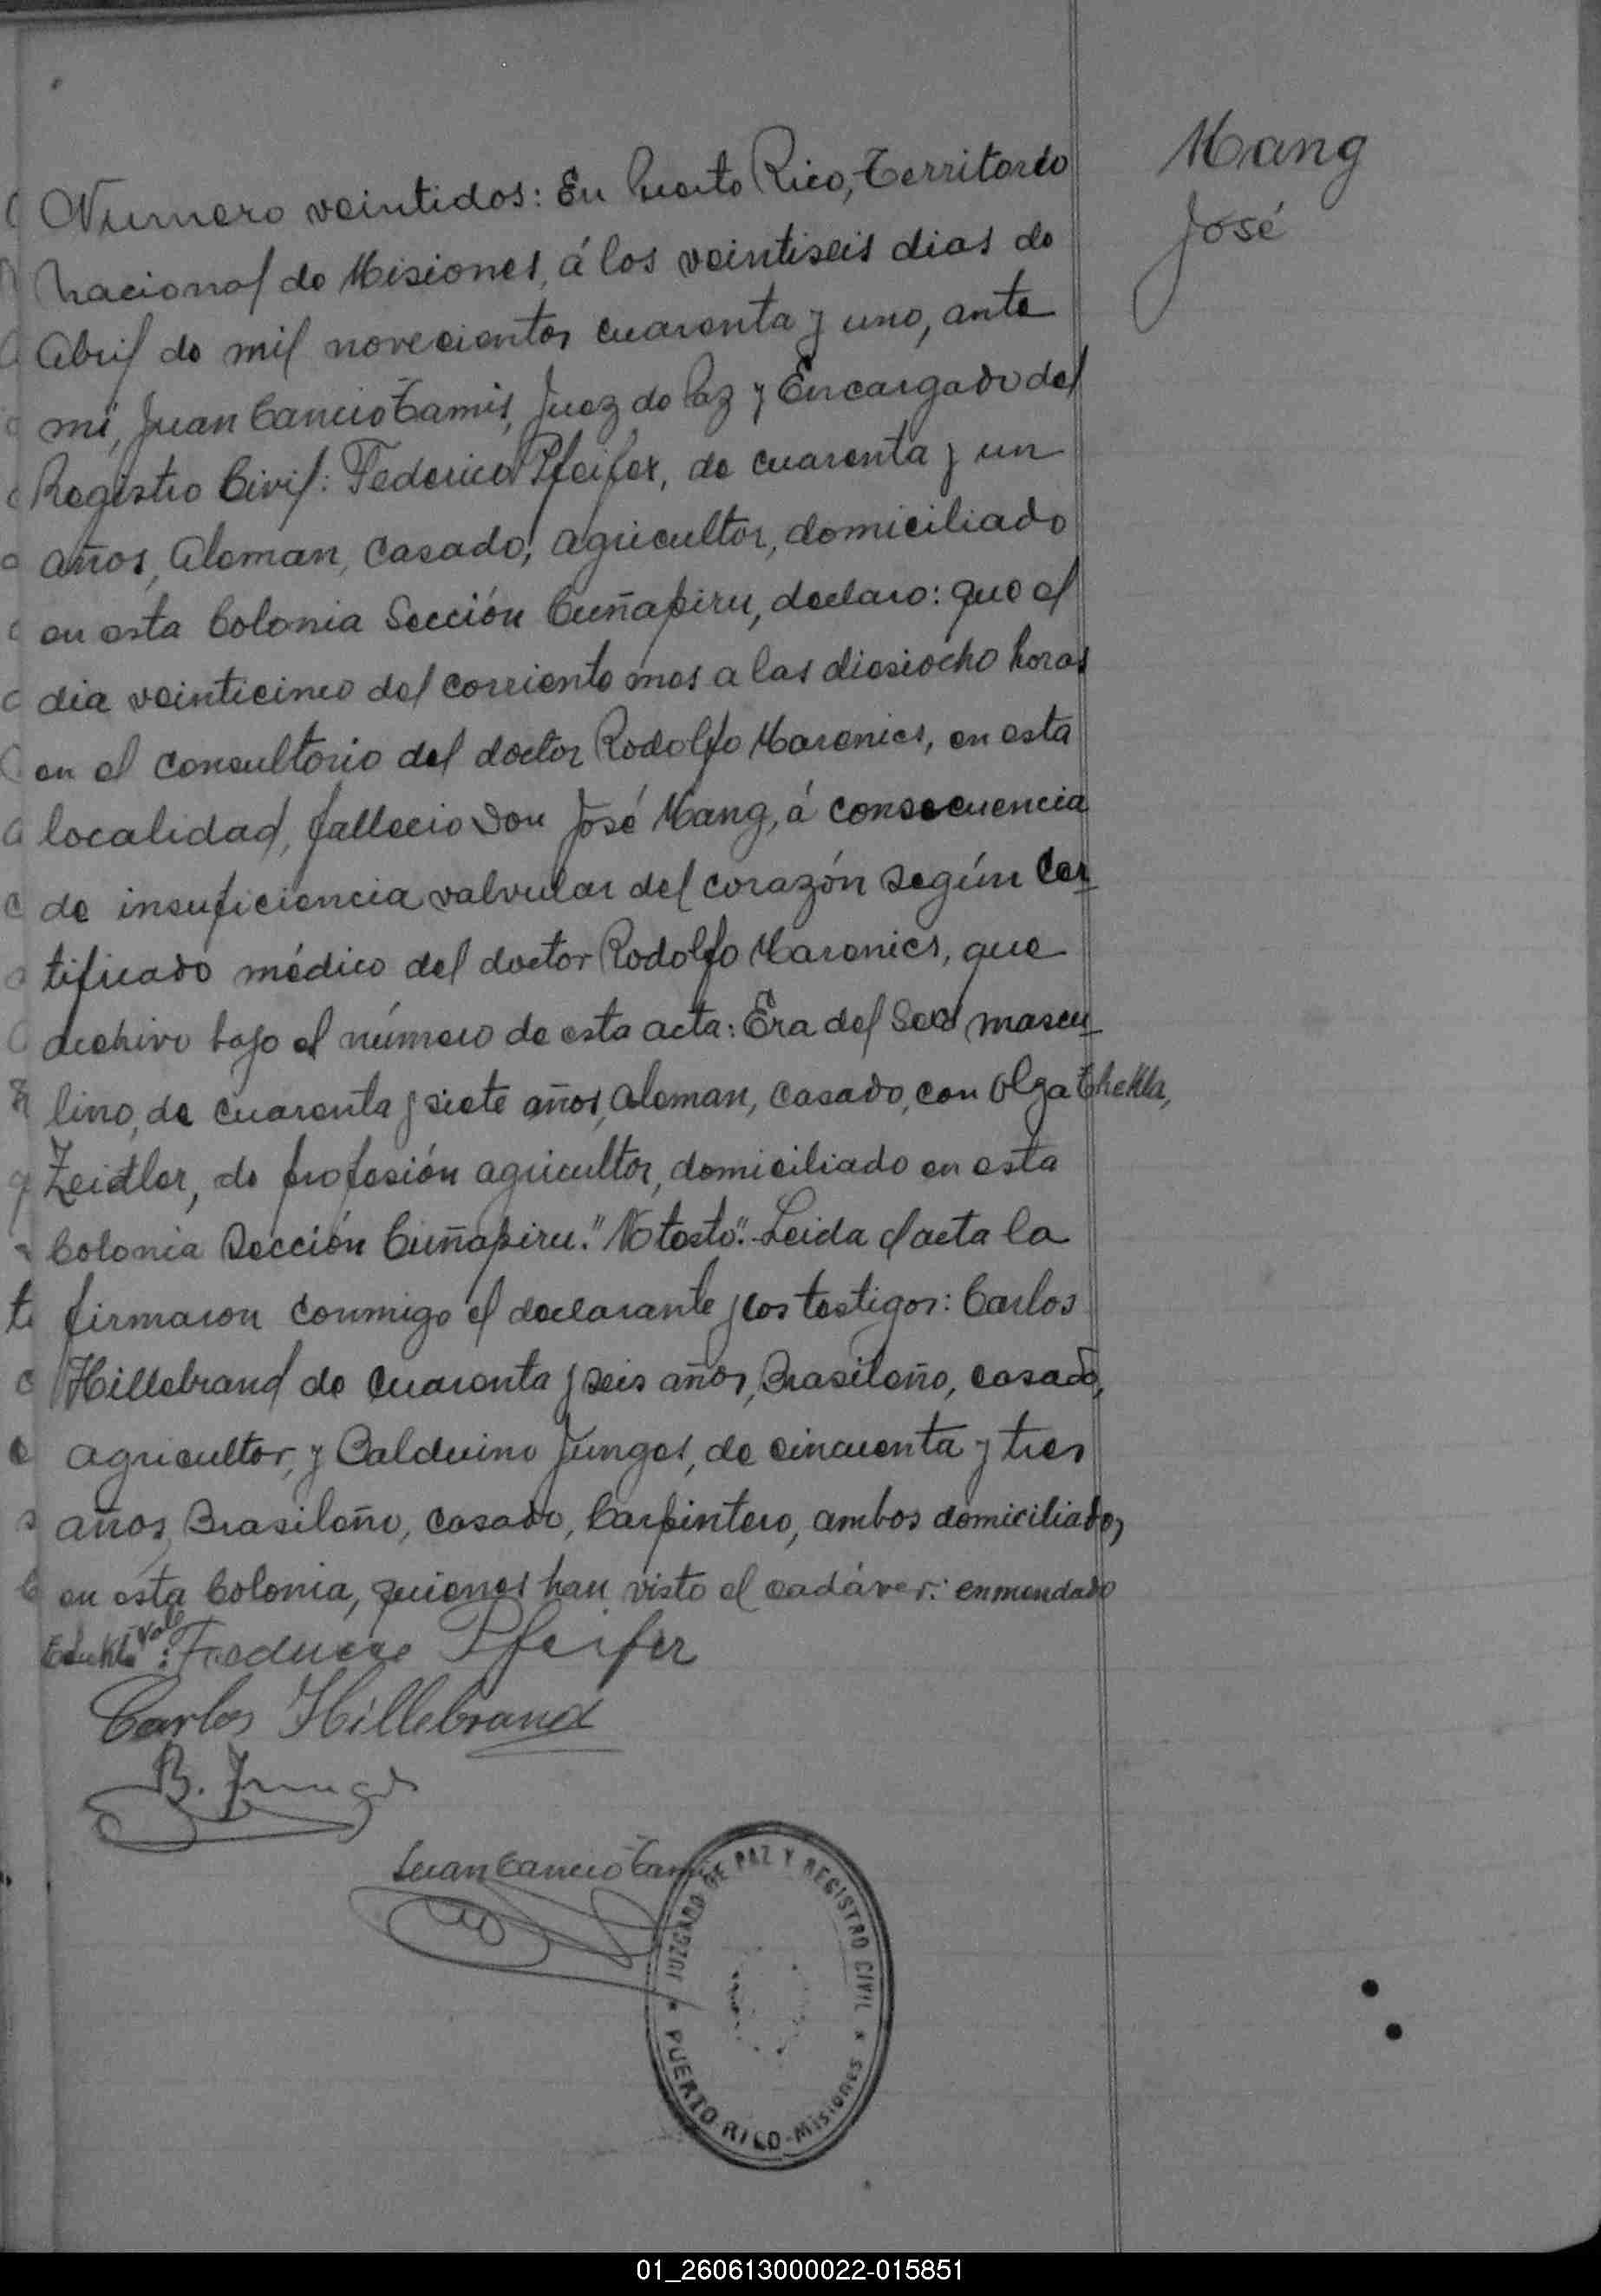 Mang
José
Numero veintidos: En Puerto Rico, Territorio
Nacional de Misiones, á los veintiseis dias de
Abril de mil novecientos cuarenta y uno, ante
mi, Juan Cancio Tamis, Juez de Paz y Encargado del
Registro Civil: Federico Pfeifer, de cuarenta y un
años, Aleman, casado, agricultor, domiciliado
en esta Colonia Sección Cuñapiru, declaro: que el
dia veinticinco del corriente mes a las diesiocho horas
en el consultorio del doctor Rodolfo Marenics, en esta
localidad, fallecio Don José Mang, á consecuencia
de insuficiencia valvular del corazón según Cer
tificado médico del doctor Rodolfo Marenics, que
archivo bajo el número de esta acta: Era del Sexo mascu
lino, de cuarenta y siete años, Aleman, casado, con Olga Thekla,
Zeidler, de profesión agricultor, domiciliado en esta
Colonia Sección Cuñapiru. "No testo". Leida el acta la
firmaron conmigo el declarante y los testigos: Carlos
Hillebrand de cuarenta y seis años, Brasileño, casado,
agricultor, y Balduino Junges, de cincuenta y tres
años, Brasileño, casado, Carpintero, ambos domiciliados
en esta Colonia, quienes han visto el cadáver: enmendado
Vale: Pfeifer
Carlos Hillebrand
B. Junges
Juan Cancio Tamis
JUZGADO DE PAZ Y REGISTRO CIVIL
* PUERTO RICO - Misiones *
01_260613000022-015851